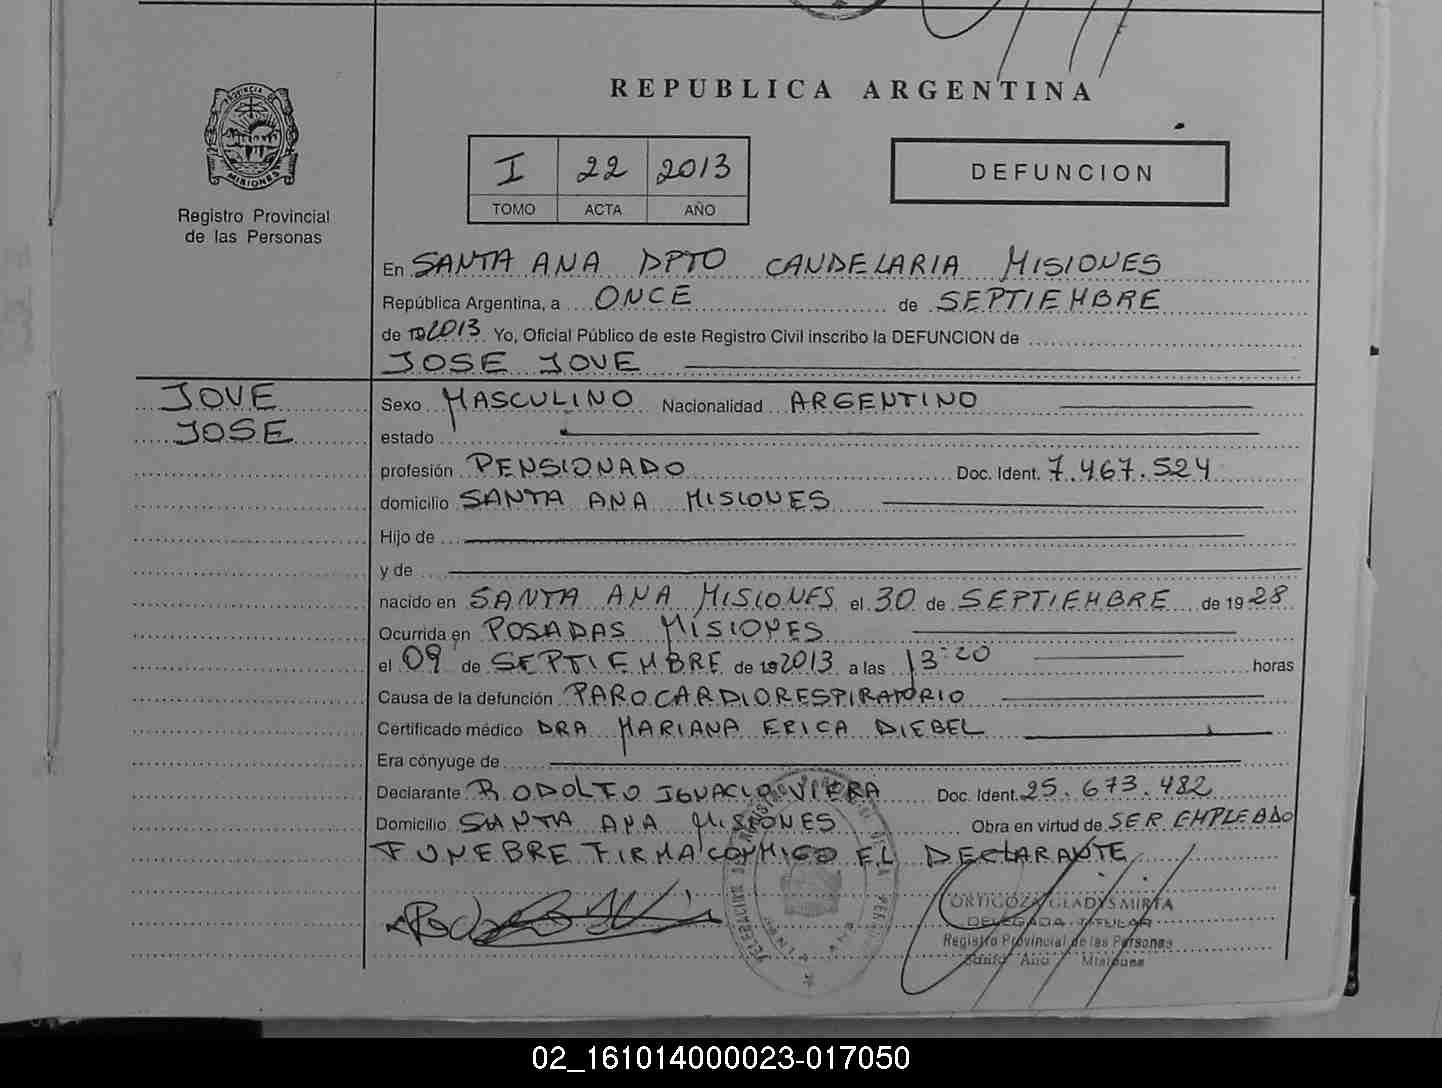 REPUBLICA ARGENTINA
PROVINCIA DE
MISIONES
Registro Provincial
de las Personas
I 22 2013
TOMO ACTA AÑO
DEFUNCION
En SANTA ANA DPTO CANDELARIA MISIONES
República Argentina, a ONCE de SEPTIEMBRE
de 2013 Yo, Oficial Público de este Registro Civil inscribo la DEFUNCION de
JOSE JOVE
JOVE
JOSE
Sexo MASCULINO Nacionalidad ARGENTINO
estado
profesión PENSIONADO Doc. Ident. 7.467.524
domicilio SANTA ANA MISIONES
Hijo de
y de
nacido en SANTA ANA MISIONES el 30 de SEPTIEMBRE de 1928
Ocurrida en POSADAS MISIONES
el 09 de SEPTIEMBRE de 2013 a las 13:20 horas
Causa de la defunción PAROCARDIORESPIRATORIO
Certificado médico DRA MARIANA ERICA DIEBEL
Era cónyuge de
Declarante RODOLFO IGNACIO VIERA Doc. Ident. 25.673.482
Domicilio SANTA ANA MISIONES Obra en virtud de SER EMPLEADO
FUNEBRE FIRMA CONMIGO EL DECLARANTE
ORTIGOZA GLADYS MIRTA
DELEGADA TITULAR
Registro Provincial de las Personas
Santa Ana Misiones
02_161014000023-017050